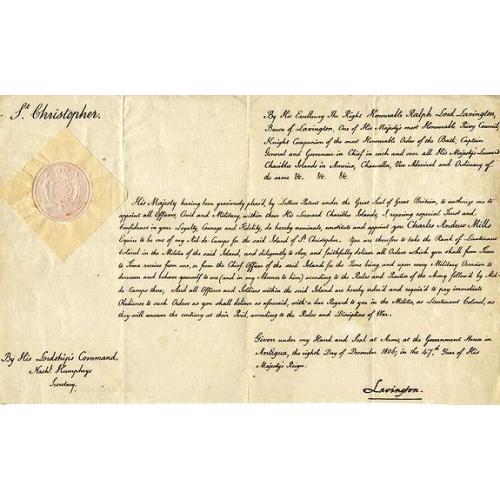 St Christopher.
By His Excellency The Right Honourable Ralph Lord Lavington,
Baron of Lavington, One of His Majesty's most Honourable Privy Council,
Knight Companion of the most Honourable Order of the Bath, Captain
General and Governour in Chief in and over all His Majesty's Leeward
Charibbee Islands in America, Chancellor, Vice Admiral and Ordinary of
the same &c. &c. &c.
His Majesty having been graciously pleas'd, by Letters Patent under the Great Seal of Great Britain, to authorize me to
appoint all Officers, Civil and Military, within these His Leeward Charibbee Islands, I reposing especial Trust and
Confidence in your Loyalty, Courage and Fidelity, do hereby nominate, constitute and appoint you Charles Andrew Mills
Esquire to be one of my Aid-de-Camps for the said Island of St Christopher. You are therefore to take the Rank of Lieutenant
Colonel in the Militia of the said Island, and diligently to obey, and faithfully deliver all Orders which you shall from Time
to Time receive from me, or from the Chief Officer of the said Island for the Time being, and upon every Military Occasion to
demean and behave yourself to me (and in my Absence to him) according to the Rules and Practice of the Army follow'd by Aid-
de-Camps there; And all Officers and Soldiers within the said Island are hereby order'd and requir'd to pay immediate
Obedience to such Orders as you shall deliver as aforesaid, with a due Regard to you in the Militia, as Lieutenant Colonel, as
they will answer the contrary at their Peril, according to the Rules and Discipline of War.
Given under my Hand and Seal at Arms, at the Government House in
Antigua, the eighth Day of December 1806; in the 47th Year of His
Majesty's Reign.
By His Lordship's Command,
Humphrys
Secretary.
Lavington.